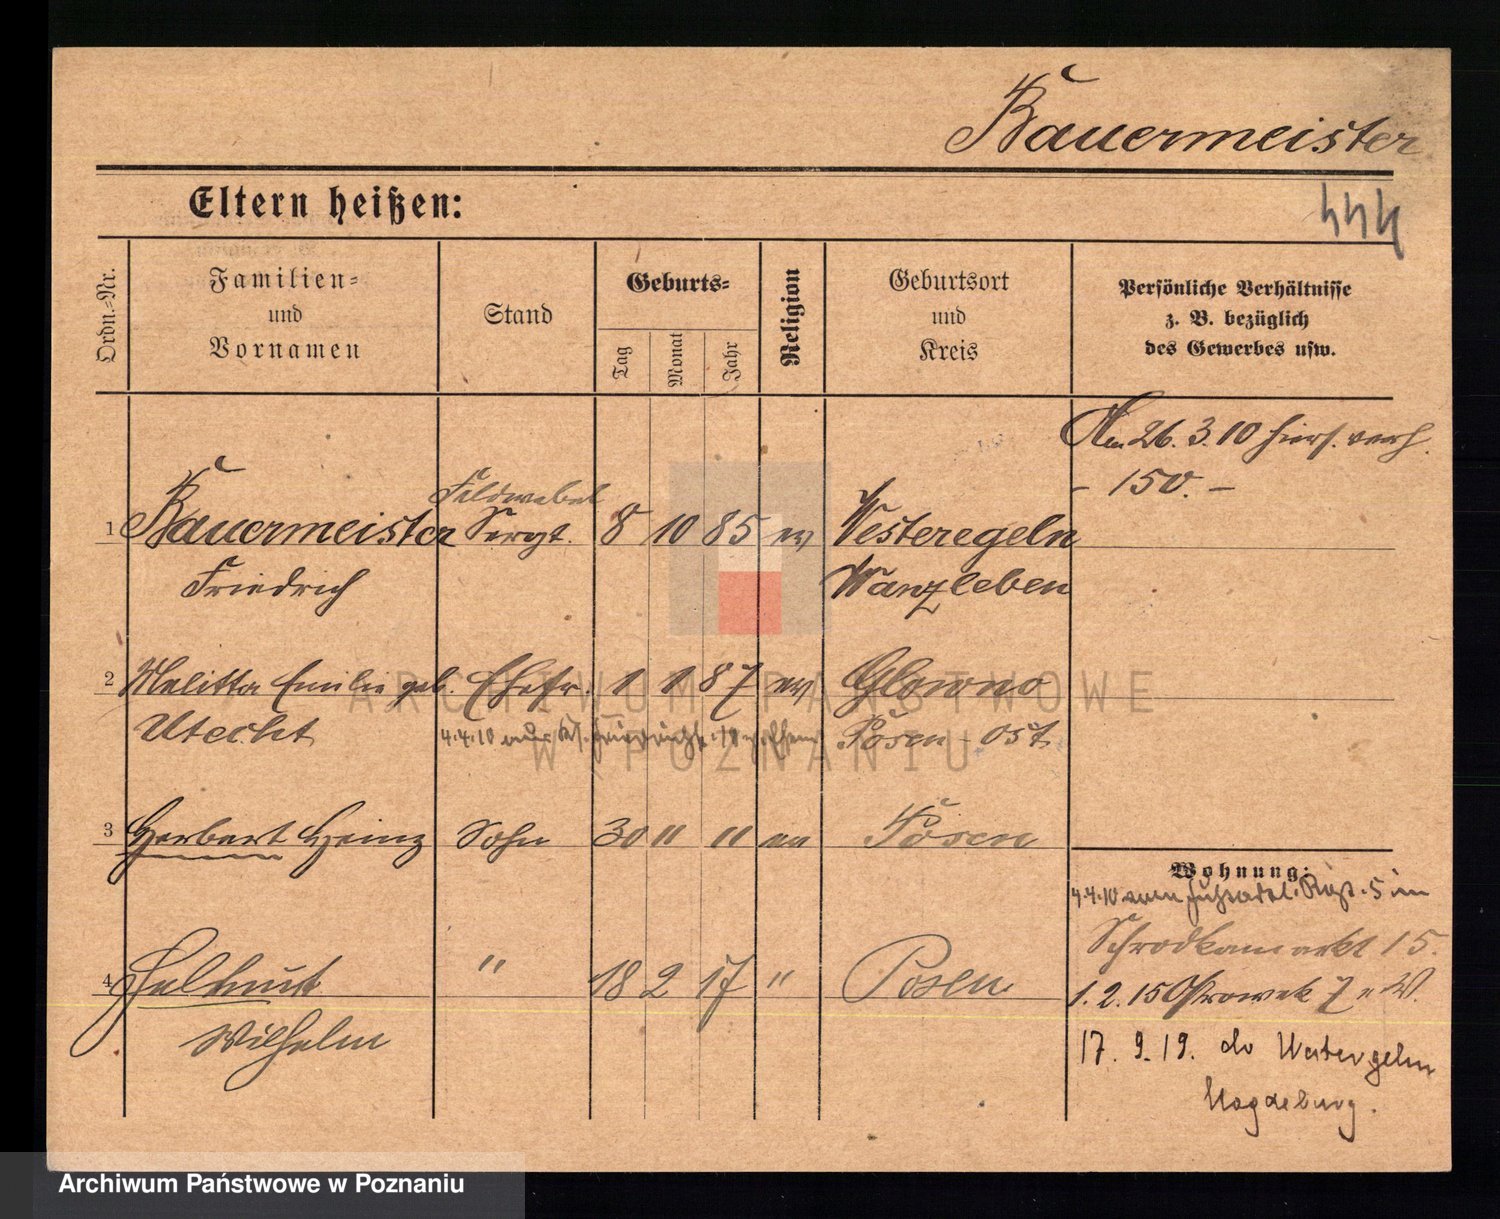 Bauermeister
Eltern heißen:
444
Ordn.-Nr.
Familien-
und
Vornamen
Stand
Geburts-
Tag
Monat
Jahr
Religion
Geburtsort
und
Kreis
Persönliche Verhältnisse
z. B. bezüglich
des Gewerbes usw.
Am 26. 3. 10 hiers. verh.
- 150. -
Feldwebel
1 Bauermeister Sergt. 8 10 85 ev Westeregeln
Friedrich Wanzleben
2 Melitta Emilie geb. Ehefr. 1 1 87 ev Glowno
Utecht Posen - Ost
4.4.10
3 Herbert Heinz Sohn 30 " " ev Posen
Wohnung:
4.4.10 vom Fußartl. Regt. 5 in
Schrodkamarkt 15.
4 Helmut " 18 2 17 " Posen
1. 2. 15 Ostrowek 7 W.
Wilhelm
17. 9. 19. do Westeregeln
Magdeburg.
ARCHIWUM PAŃSTWOWE
W POZNANIU
Archiwum Państwowe w Poznaniu